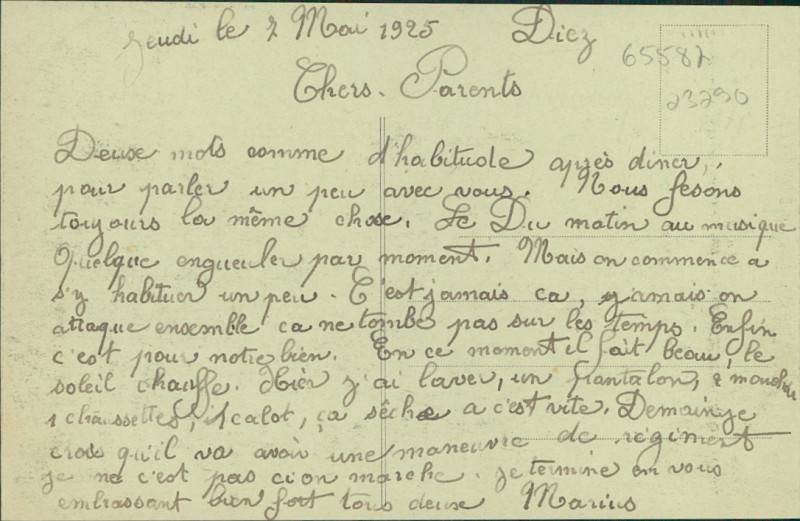 Jeudi le 7 Mai 1925 Diez
65587
23290
Chers Parents
Deuxe mots comme d'habitude après diner,
pour parler un peu avec vous. Nous fesons
toujours la même chose. Le Du matin au musique
Quelque engueuler par moment. Mais on commence a
s'y habituer un peu. C'est jamais ca, jamais on
attaque ensemble ca ne tombe pas sur les temps. Enfin
c'est pour notre bien. En ce moment il fait beau, le
soleil chauffe. Hièr j'ai laver, un pantalon, 2
1 chaussettes, 1 calot, ça sêche a c'est vite. Demain je
crois qu'il va avoir une maneuvre de régiment
je ne c'est pas ci on marche. je termine en vous
embrassant bien fort tous deuxe Marius